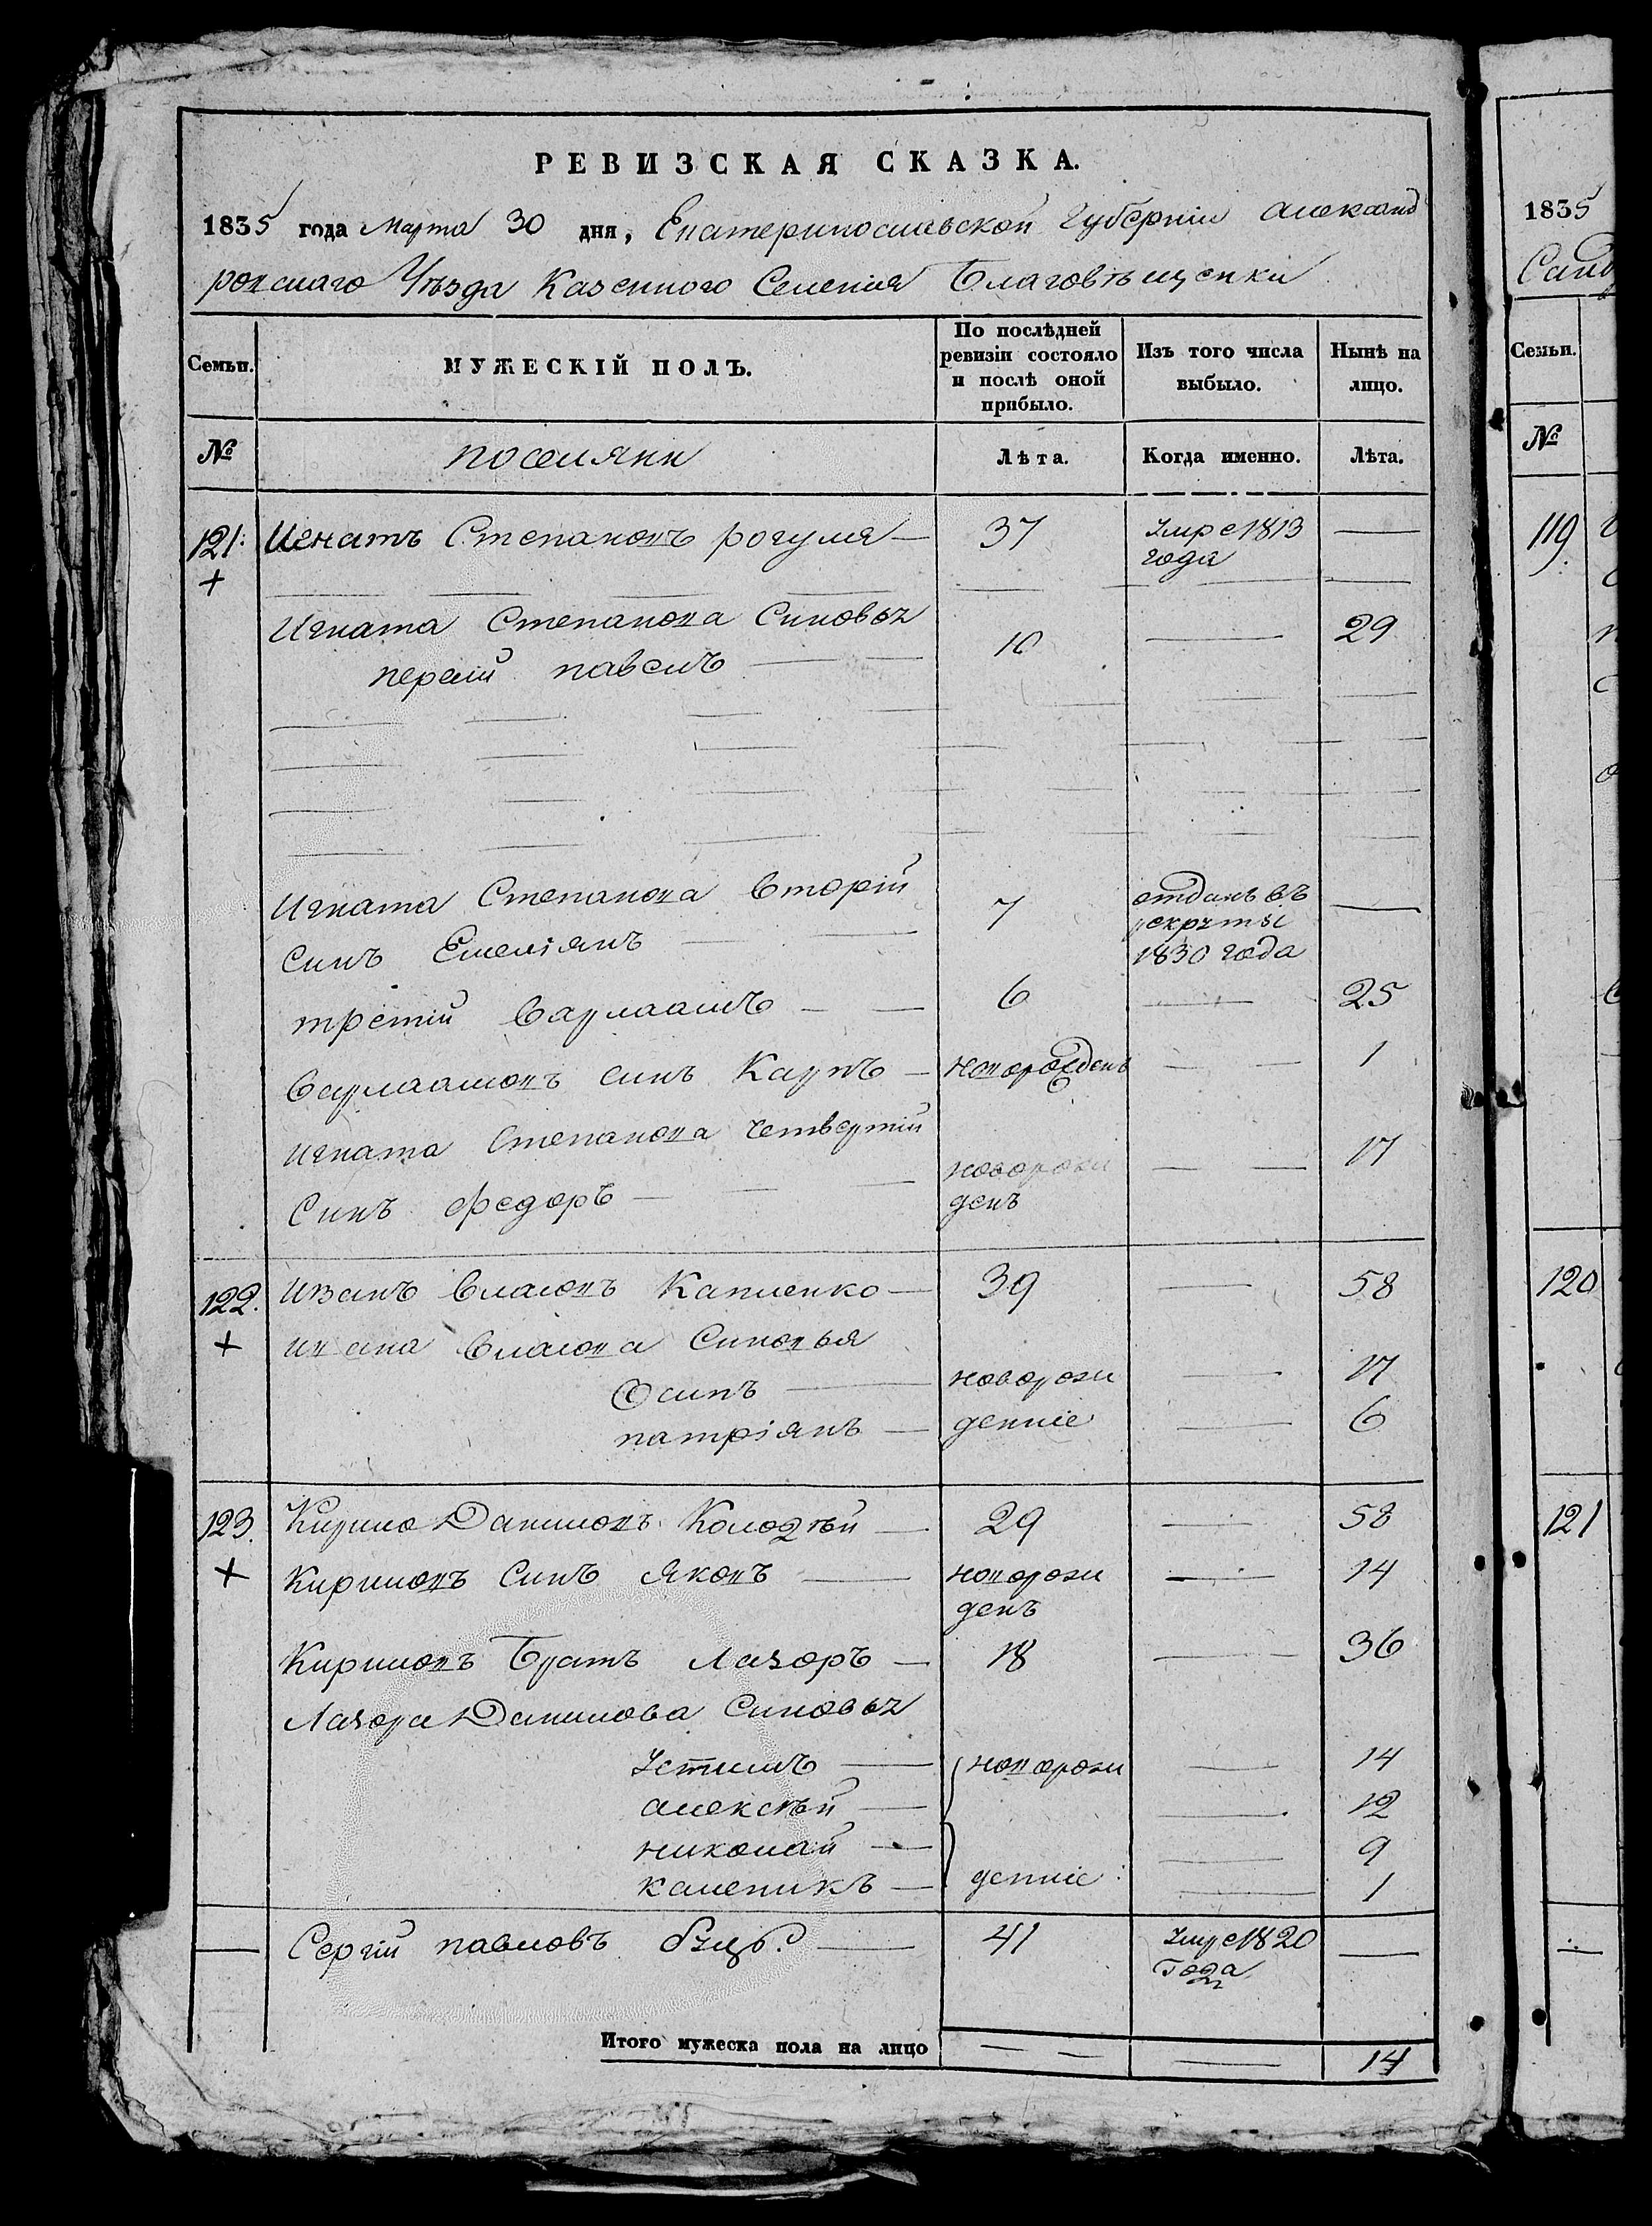 РЕВИЗСКАЯ СКАЗКА.
1835 года марта 30 дня, Екатеринославской Губерніи Александ
ровскаго Уѣзда Казенного Селенія Благовѣщенки
Семьи. МУЖЕСКІЙ ПОЛЪ. По послѣдней ревизіи состояло и послѣ оной прибыло. Изъ того числа выбыло. Нынѣ на лицо.
№ поселяни Лѣта. Когда именно. Лѣта.
121. Игнатъ Степановъ рогуля — 37 Умре 1813 —
+ года
Игната Степанова Синовья 29
первій павелъ — 10 —
Игната Степанова вторій 7 отданъ въ —
Синъ Емеліянъ — рекруты
1830 года
третій Варлаамъ — 6 — 25
Варлаамовъ синъ Карпъ — новорожденъ — 1
Игната Степанова четвертій новорож — 17
Синъ Федоръ — денъ
122. Иванъ Власовъ Капленко — 39 — 58
+ Ивана Власова Синовья
Осипъ — новорож — 17
патріянъ — денніе — 6
123. Кирило Даниловъ Колодѣй — 29 — 58
+ Кириловъ Синъ Яковъ — новорож — 14
денъ
Кириловъ Братъ Лазоръ — 18 — 36
Лазора Данилова Синовья
Устимъ — новорож — 14
алексѣй — — 12
николай — — 9
каленикъ — денніе — 1
— Сергій павловъ — 41 Умре 1820 —
Года
Итого мужеска пола на лицо — — — 14
1835
Семьи.
№
119
120
121